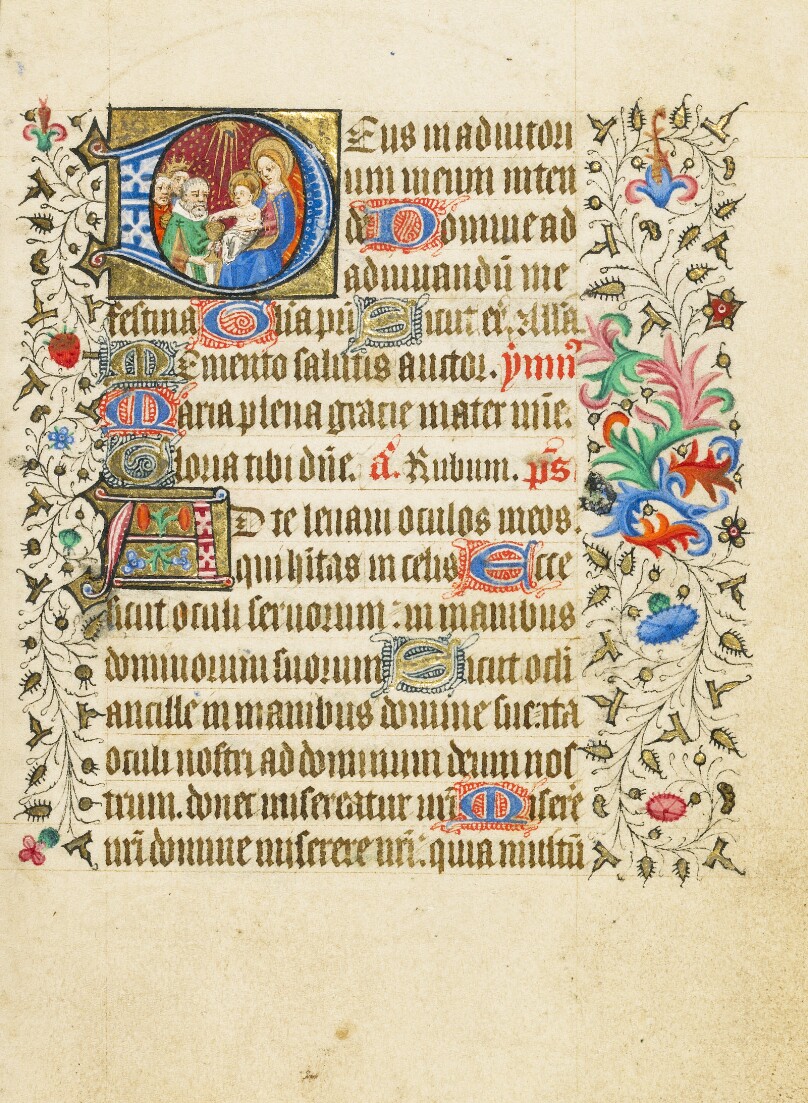 Deus in adiutori
um meum inten
de Domine ad
adiuuandū me
festina Glīa pr̄i Sicut er̄. Allīa
Memento salutis auctor. ymnꝰ
Maria plena gracie mater mīe.
Gloria tibi dn̄e. a͞. Rubum. pꝰ̄s
Ad te leuaui oculos meos.
qui hītas in celis Ecce
sicut oculi seruorum : in manibus
dominorum suorum Sicut ocl̄i
ancille in manibus domine sue: ita
oculi nostri ad dominum deum nos
trum. donec misereatur nr̄i Miserē
nr̄i domine miserere nr̄i: quia multū